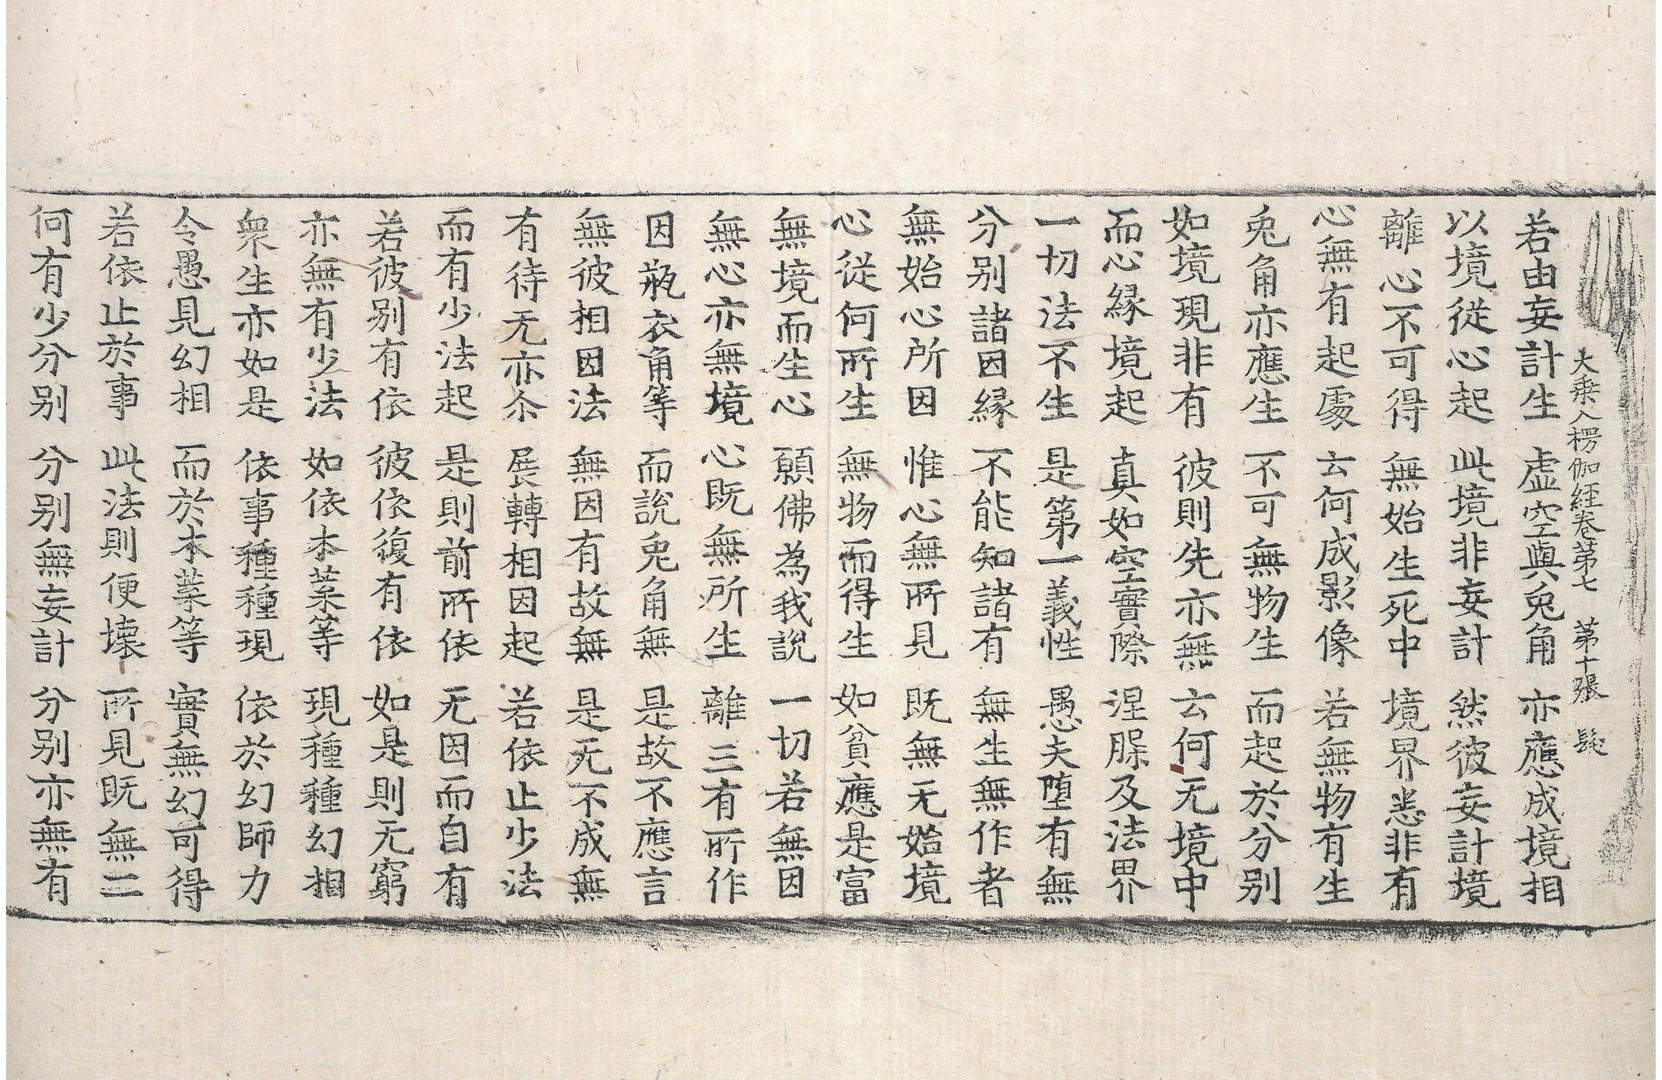 大乘入楞伽經卷第七 第十張 髮
若由妄計生 虛空與兔角 亦應成境相
以境從心起 此境非妄計 然彼妄計境
離心不可得 無始生死中 境界悉非有
心無有起處 云何成影像 若無物有生
兔角亦應生 不可無物生 而起於分別
如境現非有 彼則先亦無 云何无境中
而心緣境起 真如空實際 涅槃及法界
一切法不生 是第一義性 愚夫墮有無
分別諸因緣 不能知諸有 無生無作者
無始心所因 惟心無所見 既無无始境
心從何所生 無物而得生 如貧應是富
無境而生心 願佛為我說 一切若無因
無心亦無境 心既無所生 離三有所作
因瓶衣角等 而說兔角無 是故不應言
無彼相因法 無因有故無 是无不成無
有待无亦尒 展轉相因起 若依止少法
而有少法起 是則前所依 无因而自有
若彼別有依 彼依復有依 如是則无窮
亦無有少法 如依木葉等 現種種幻相
衆生亦如是 依事種種現 依於幻師力
令愚見幻相 而於木葉等 實無幻可得
若依止於事 此法則便壞 所見既無二
何有少分別 分別無妄計 分別亦無有